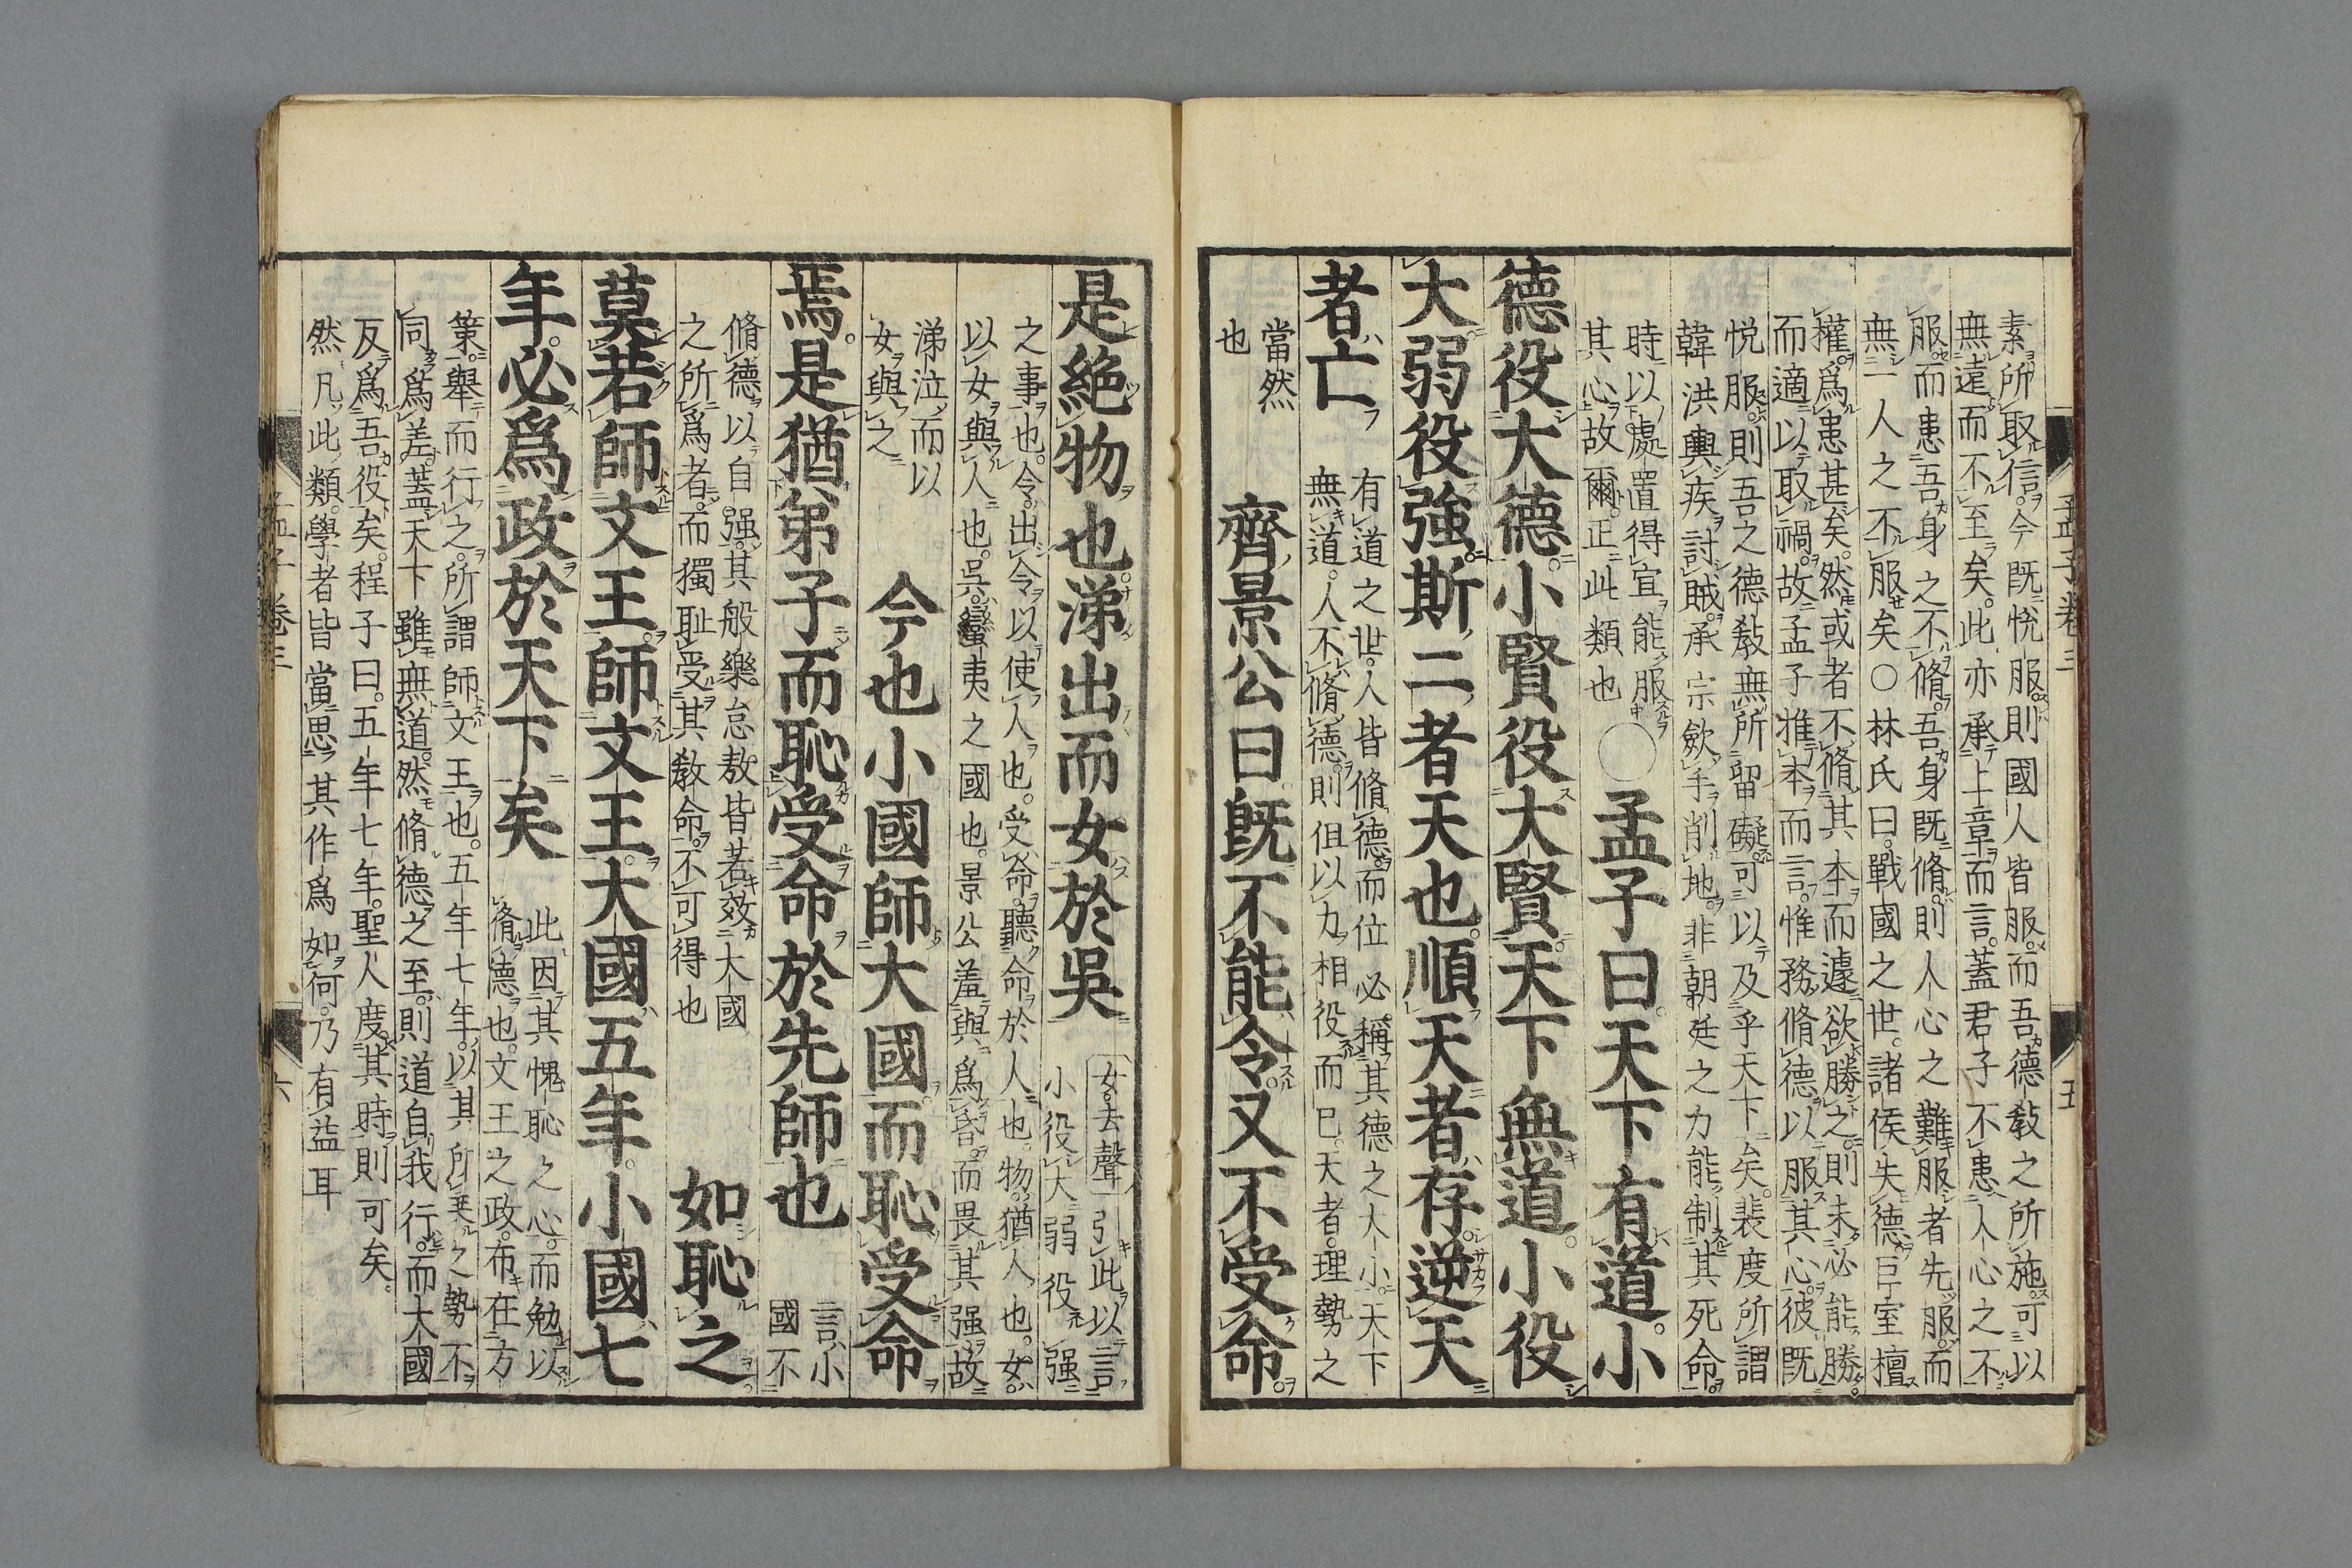 素所取信今既悅服則國人皆服而吾德敎之所施可以
無遠而不至矣此亦承上章而言蓋君子不患人心之不
服而患吾身之不脩吾身既脩則人心之難服者先服而
無一人之不服矣○林氏曰戰國之世諸侯失德巨室擅
權爲患甚矣然或者不脩其本而遽欲勝之則未必能勝
而適以取禍故孟子推本而言惟務脩德以服其心彼既
悅服則吾之德敎無所留礙可以及乎天下矣裴度所謂
韓洪輿疾討賊承宗歛手削地非朝廷之力能制其死命
時以處置得宜能服
其心故爾正此類也
○孟子曰天下有道小
德役大德小賢役大賢天下無道小役
大弱役強斯二者天也順天者存逆天
者亡
有道之世人皆脩德而位必稱其德之大小天下
無道人不脩德則但以力相役而已天者理勢之
當然
也
齊景公曰既不能令又不受命
孟子卷三
五
是絕物也涕出而女於吳
女去聲 引此以言
小役大弱役强
之事也令出令以使人也受命聽命於人也物猶人也女
以女與人也吳蠻夷之國也景公羞與爲昏而畏其强故
涕泣而以
女與之
今也小國師大國而恥受命
焉是猶弟子而恥受命於先師也
言小
國不
脩德以自强其般樂怠敖皆若效大國
之所爲者而獨耻受其敎命不可得也
如恥之
莫若師文王師文王大國五年小國七
年必爲政於天下矣
此因其愧恥之心而勉以
脩德也文王之政布在方
策舉而行之所謂師文王也五年七年以其所乗之勢不
同爲差蓋天下雖無道然脩德之至則道自我行而大國
反爲吾役矣程子曰五年七年聖人度其時則可矣
然凡此類學者皆當思其作爲如何乃有益耳
孟子卷三
六